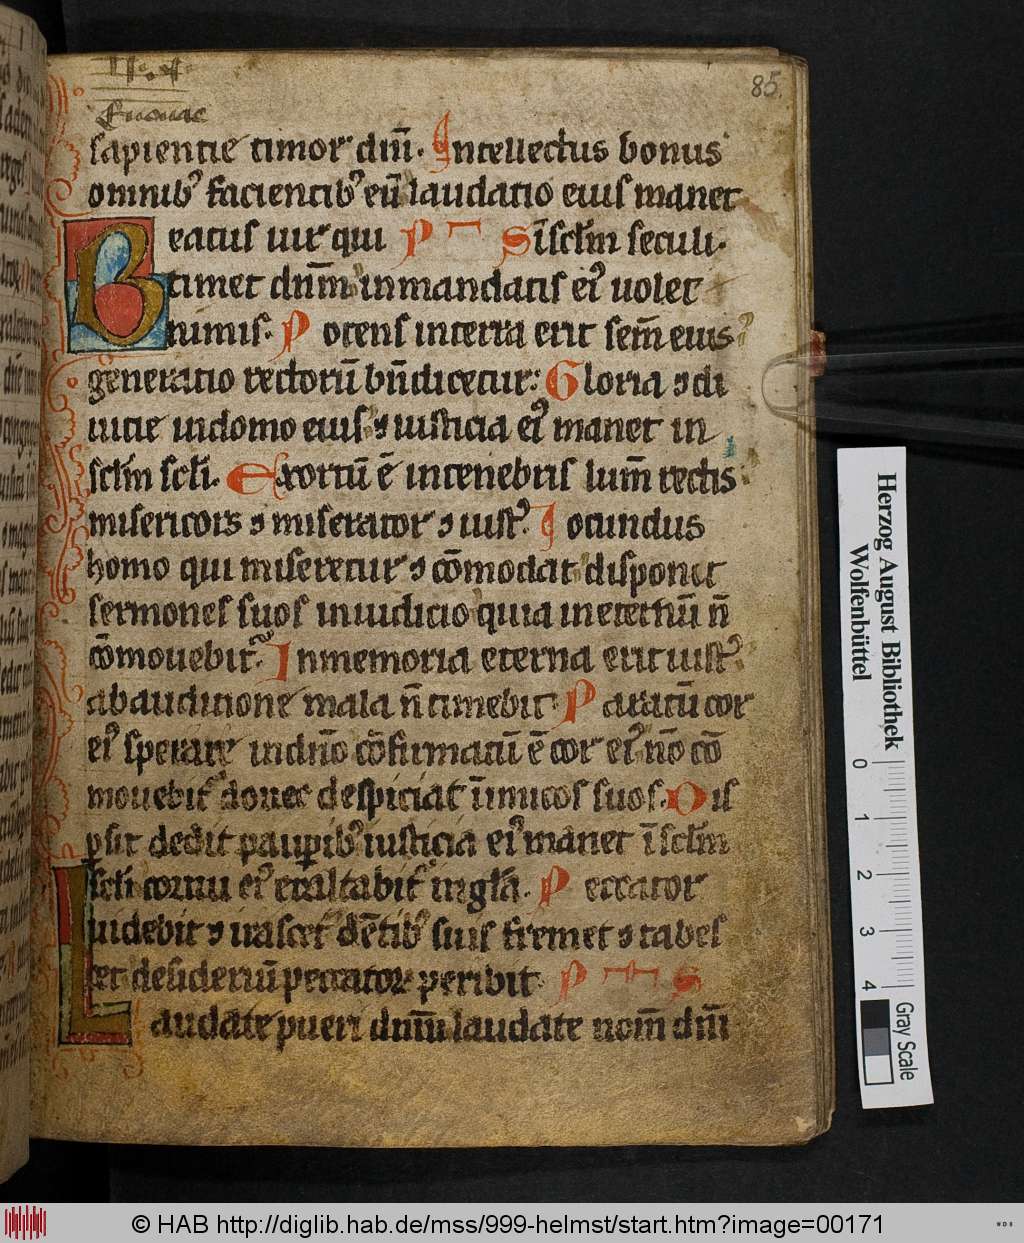 85.
Euouae
sapientie timor dñi. Intellectus bonus
omnib᷒ facientib᷒ eū laudatio eius manet
Beatus uir qui P S ĩsclm̃ seculi.
timet dnm̃ inmandatis ei᷒ uolet
nimis. Potens interra erit sem̃ eius
generatio rectorū bñdicetur: Gloria ⁊ di
uitie indomo eius ⁊ iusticia ei᷒ manet in
sclm̃ scli. Exortū ē intenebris lum̃ rectis
misericors ⁊ miserator ⁊ iust᷒. Iocundus
homo qui miseretur ⁊ cōmodat disponit
sermones suos iniudicio quia ineternū ñ
cōmouebit᷑. Inmemoria eterna erit iust᷒
abauditione mala ñ timebit. Paratū cor
ei᷒ sperare indño cōfirmatū ē cor ei᷒ ño cō
mouebit᷑ donec despiciat ĩimicos suos. Dis
psit dedit paupib᷒ iusticia ei᷒ manet ĩ sclm̃
scli cornu ei᷒ exaltabit᷑ ingła. Peccator
uidebit ⁊ irascet᷑ dētib᷒ suis fremet ⁊ tabes
cet desideriū peccatorꝝ peribit. P S
Laudate pueri dnm̃ laudate nom̃ dñi
Herzog August Bibliothek
Wolfenbüttel
0 1 2 3 4
Gray Scale
© HAB http://diglib.hab.de/mss/999-helmst/start.htm?image=00171
WDB